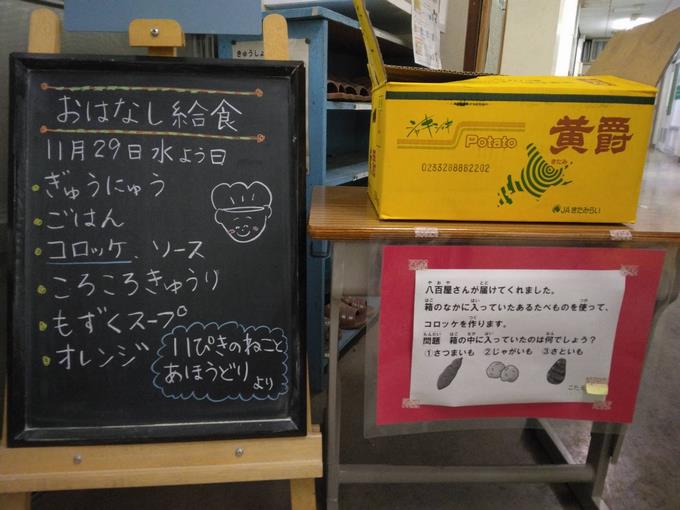 おはなし給食
11月29日水よう日
ぎゅうにゅう
ごはん
コロッケ、ソース
ころころきゅうり
もずくスープ
オレンジ
11ぴきのねこと
あほうどり
より
きゅうしょ
シャキシャキ
Potato
黄爵
きたみ
0233288862202
JAきたみらい
八百屋さんが届けてくれました。
箱のなかに入っていたあるたべものを使って、
コロッケを作ります。
問題 箱の中に入っていたのは何でしょう？
①さつまいも ②じゃがいも ③さといも